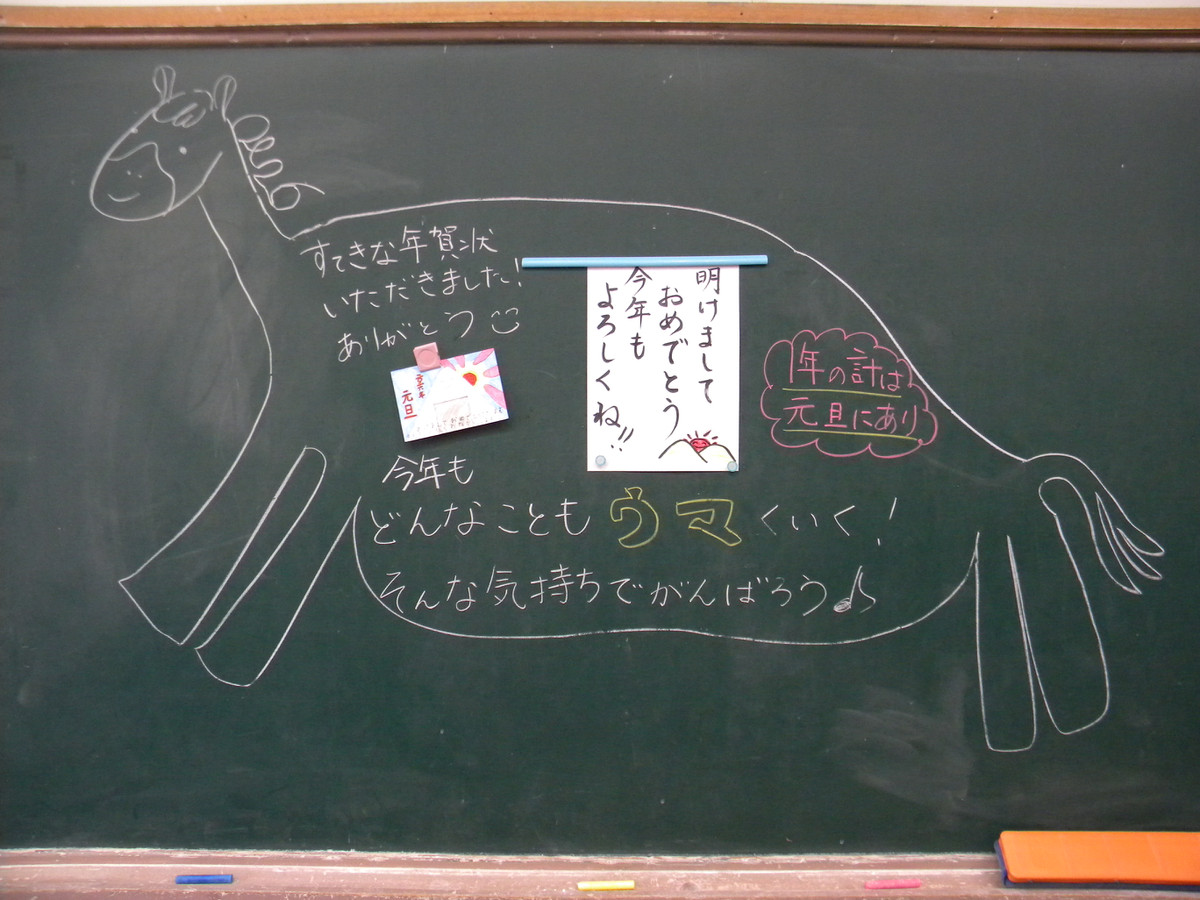 すてきな年賀状
いただきました!
ありがとう
元旦
明けまして
おめでとう
今年も
よろしくね!!
1年の計は
元旦にあり
今年も
どんなことも ウマくいく!
そんな気持ちでがんばろう♪